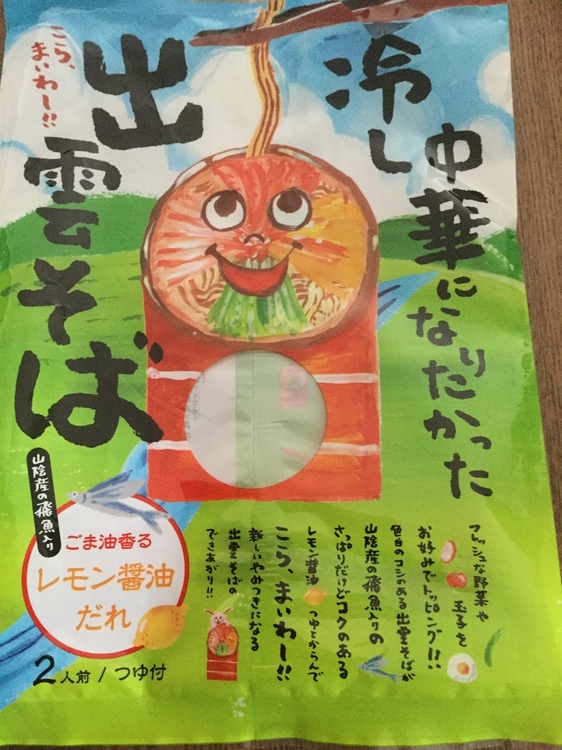 冷し中華になりたかった
出雲そば
こら、
まいわー!!
山陰産の飛魚入り
ごま油香る
レモン醤油
だれ
2人前/つゆ付
フレッシュな野菜や
玉子を
お好みでトッピング!!
色白のコシのある出雲そばが
山陰産の飛魚入りの
さっぱりだけどコクのある
レモン醤油つゆとからんで
こら、まいわー!!
新しいやみつきになる
出雲そばの
できあがり!!